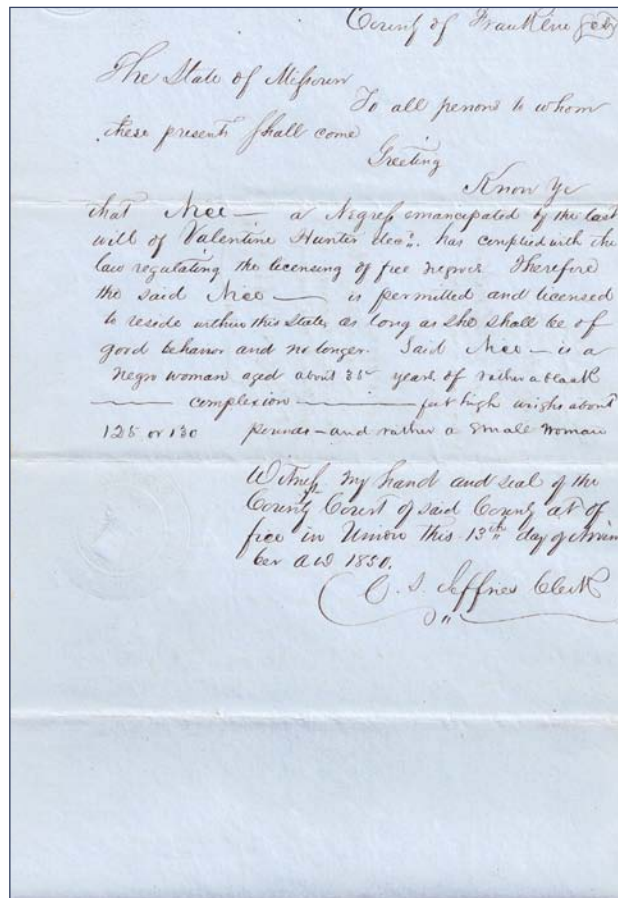 County of Franklin
The State of Missouri
To all persons to whom
these presents shall come
Greeting
Know Ye
that Nice — a Negress emancipated by the last
will of Valentine Hunter decd. has complied with the
law regulating the licensing of free negroes Therefore
the said Nice — is permitted and licensed
to reside within this State, as long as she shall be of
good behavior and no longer. Said Nice — is a
negro woman aged about 35 years of rather a black
— complexion — feet high weighs about
125 or 130 pounds — and rather a small woman
Witness my hand and seal of the
County Court of said County at of
fice in Union this 13th day of
ber AD 1850.
C. S. Jeffries Clerk